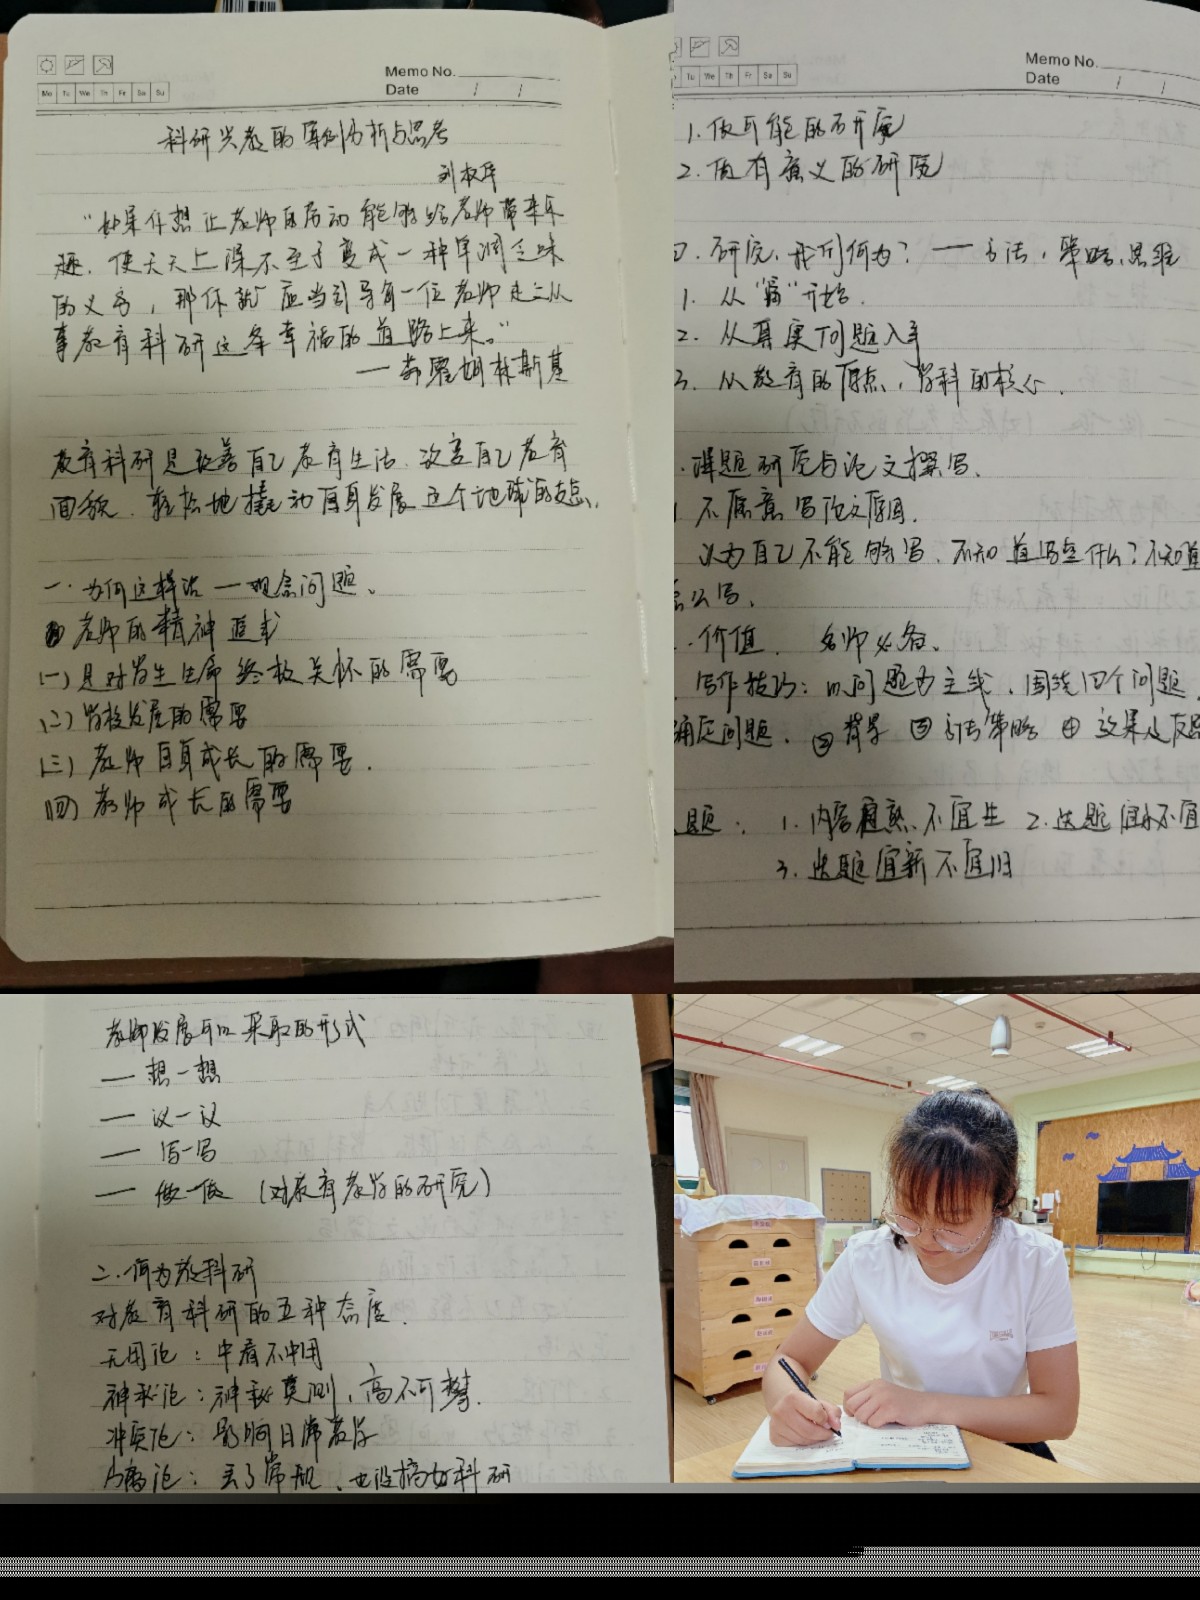 Memo No.
Date / /
Mo Tu We Th Fr Sa Su
科研兴教的案例分析与思考
"如果你想让教师的劳动能够给教师带来乐
趣，使天天上课不至于变成一种单调乏味
的义务，那你就应当引导每一位教师走上从
事教育科研这条幸福的道路上来。"
— 苏霍姆林斯基
教育科研是改善自己教育生活，改变自己教育
面貌，轻松地撬动自身发展这个地球的支点.
一.为何这样说 — 观念问题、
教师的精神追求
(一)是对学生生命终极关怀的需要
(二)学校发展的需要
(三)教师自身成长的需要.
(四)教师成长的需要
Memo No.
Date / /
Tu We Th Fr Sa Su
1.做可能的研究
2.做有意义的研究
研究，我们何为？ — 方法，策略，思维
1. 从" "开始.
2. 从真实问题入手
3. 从教育的原点，学科的核心.
.课题研究与论文撰写、
不愿意写论文原因.
以为自己不能够写、不知道写些什么？不知道
怎么写、
价值、 名师必备、
写作技巧：以问题为主线，围绕四个问题
确定问题、 ② 背景 ③ 方法策略 ④ 效果及反思
题： 1.内容 熟、不宜生 2.选题宜小不宜
3.选题宜新不宜旧
教师发展可以采取的形式
— 想一想
— 议一议
— 写一写
— 做一做 (对教育教学的研究)
二.何为教科研
对教育科研的五种态度.
无用论：中看不中用
神秘论：神秘莫测，高不可攀.
冲突论：影响日常教学
分离论：丢了常规、也没搞好科研